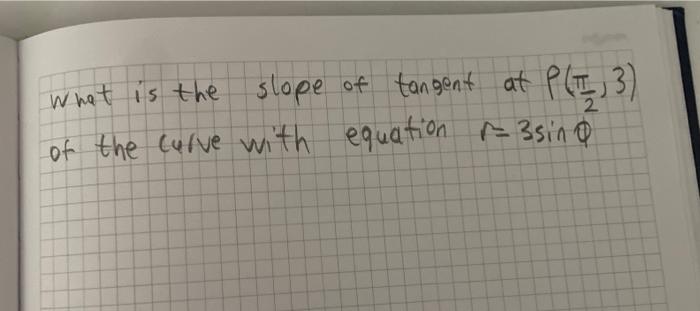 What is the slope of tangent at P(π/2, 3)
of the curve with equation r= 3sin φ